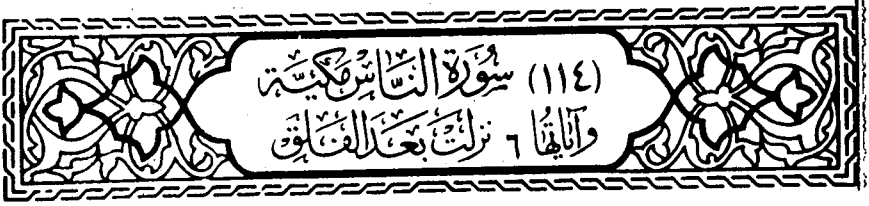 (١١٤) سُورَةُ النَّاسِ مَكِّيَّة
وَآيَاتُهَا ٦ نَزَلَتْ بَعْدَ الفَلَقِ